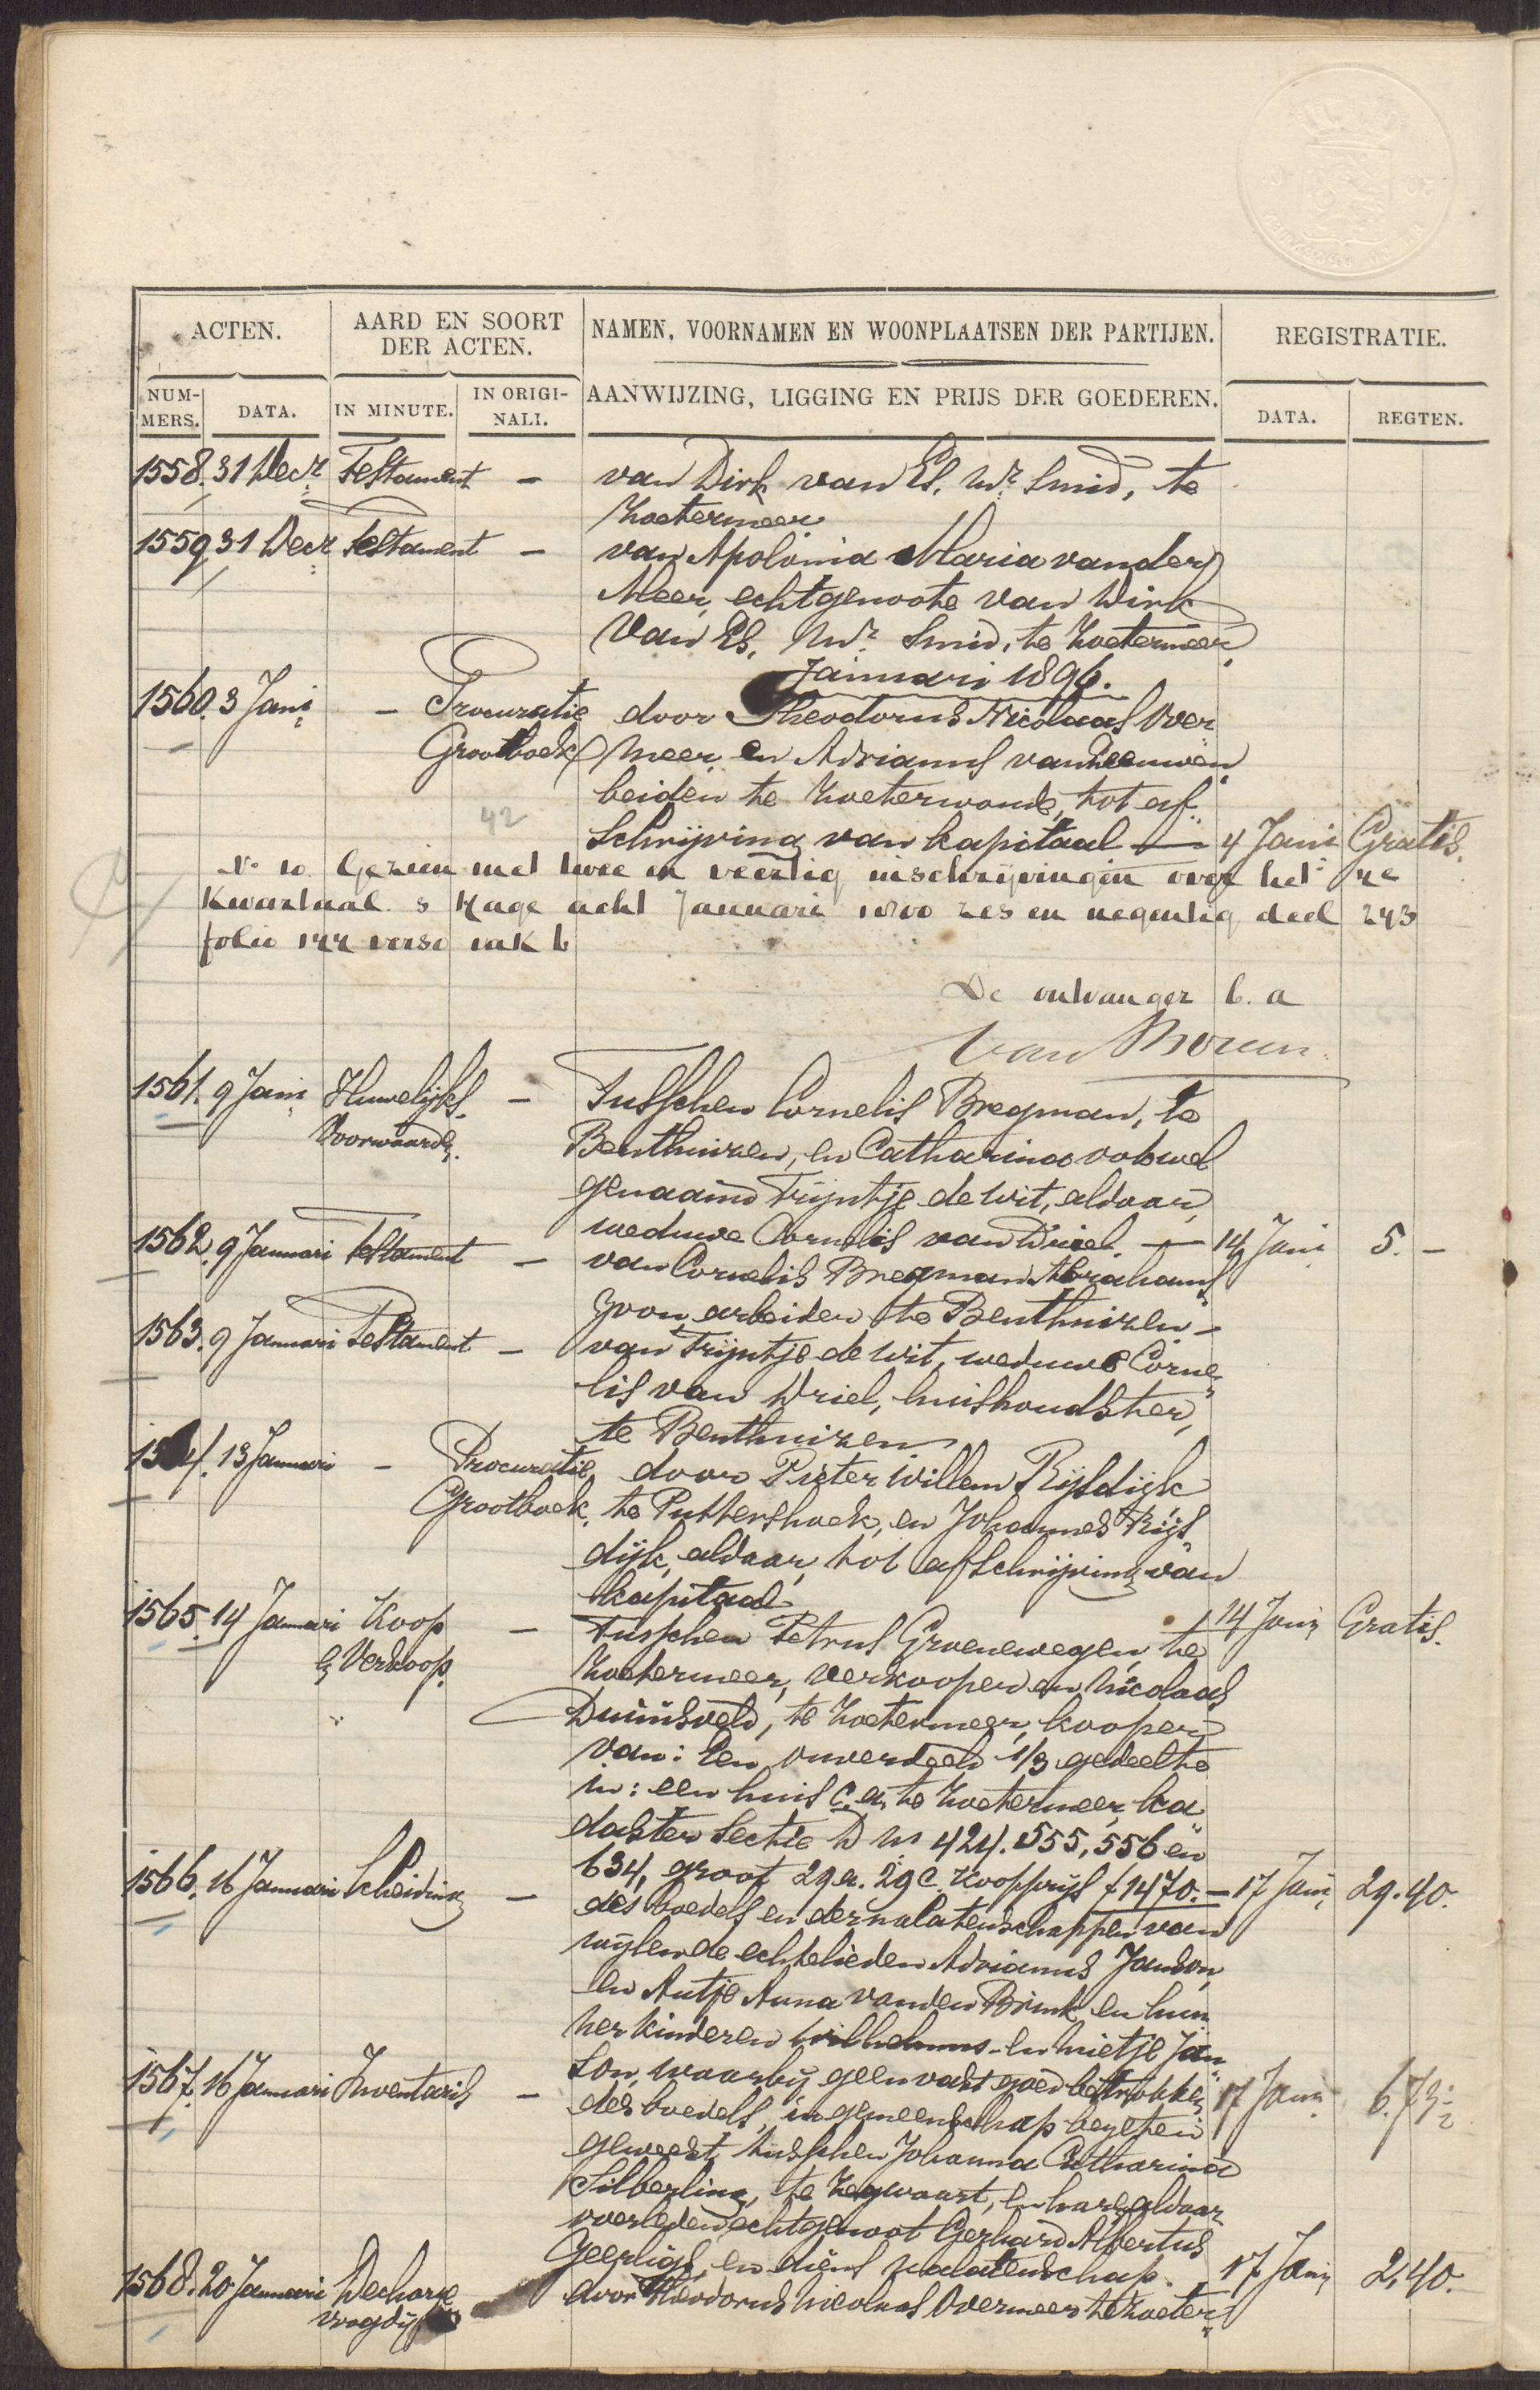 ACTEN.
AARD EN SOORT
DER ACTEN.
NAMEN, VOORNAMEN EN WOONPLAATSEN DER PARTIJEN.
REGISTRATIE.
NUM-
MERS.
DATA.
IN MINUTE.
IN ORIGI-
NALI.
AANWIJZING, LIGGING EN PRIJS DER GOEDEREN.
DATA.
REGTEN.
1558. 31 Decr Testament - van Dirk van Es, Mr Smid, te
Zoetermeer
1559 31 Decr Testament - van Apolonia Maria van der
Meer, echtgenoote van Dirk
van Es, Mr Smid, te Zoetermeer
Januari 1896.
1560. 3 Jani - Procuratie door Theodorus Nicolaas Over
Grootboek meer en Adrianus van Leeuwen
beiden te Zoeterwoude, tot af
42
schrijving van kapitaal - 4 Jani Gratis.
No 10 Gezien met twee en veertig inschrijvingen over het 4e
Kwartaal s Hage acht Januari 1800 zes en negentig deel 243
folio 144 verso vak 6
De ontvanger b. a
van
1561. 9 Jani Huwelijks - Tusschen Cornelis Bregman, te
Voorwaardn. Benthuizen, en Catharina ook wel
genaamd Trijntje de Wit, aldaar,
weduwe Cornelis van Driel. - 14 Jani 5. -
1562. 9 Januari Testament - van Cornelis Bregman Abrahams
zoon, arbeider te Benthuizen -
1563. 9 Januari Testament - van Trijntje de Wit, weduwe Corne
lis van Driel, huishoudster,
te Benthuizen
1564. 13 Januari - Procuratie door Pieter Willem Rijsdijk
Grootboek, te Puttershoek, en Johannes Rijs
dijk, aldaar, tot afschrijving van
kapitaal - 14 Jani Gratis.
1565. 14 Januari Koop - Tusschen Petrus Groenewegen, te
& Verkoop. Zoetermeer, verkooper en Nicolaas
Duinisveld, te Zoetermeer, kooper
van: Een onverdeeld 1/3 gedeelte
in: een huis c.a. te Zoetermeer, ka
daster Sectie D No 424. 555, 556 en
634, groot 29 a. 29 c. Koopprijs f 1470. - 17 Jani 29.40.
1566. 16 Januari Scheiding - des boedels en der nalatenschappen van
wijlen de echtelieden Adrianus Janson,
en Antje Anna van den Brink en hun
ner kinderen Wilhelmus en Mietje Jan
son, waarbij geen vast goed betrokken 17 Jani 6.73½
1567. 16 Januari Inventaris - des boedels, in gemeenschap bezeten
geweest tusschen Johanna Catharina
Silberling, te Zegwaart, en haar, aldaar
overleden echtgenoot Gerhard Albertus
Geerligs, en diens nalatenschap. 17 Jani 2.40.
1568. 20 Januari Decharge door Theodorus Nicolaas Overmeer te Zoeter
voogdij